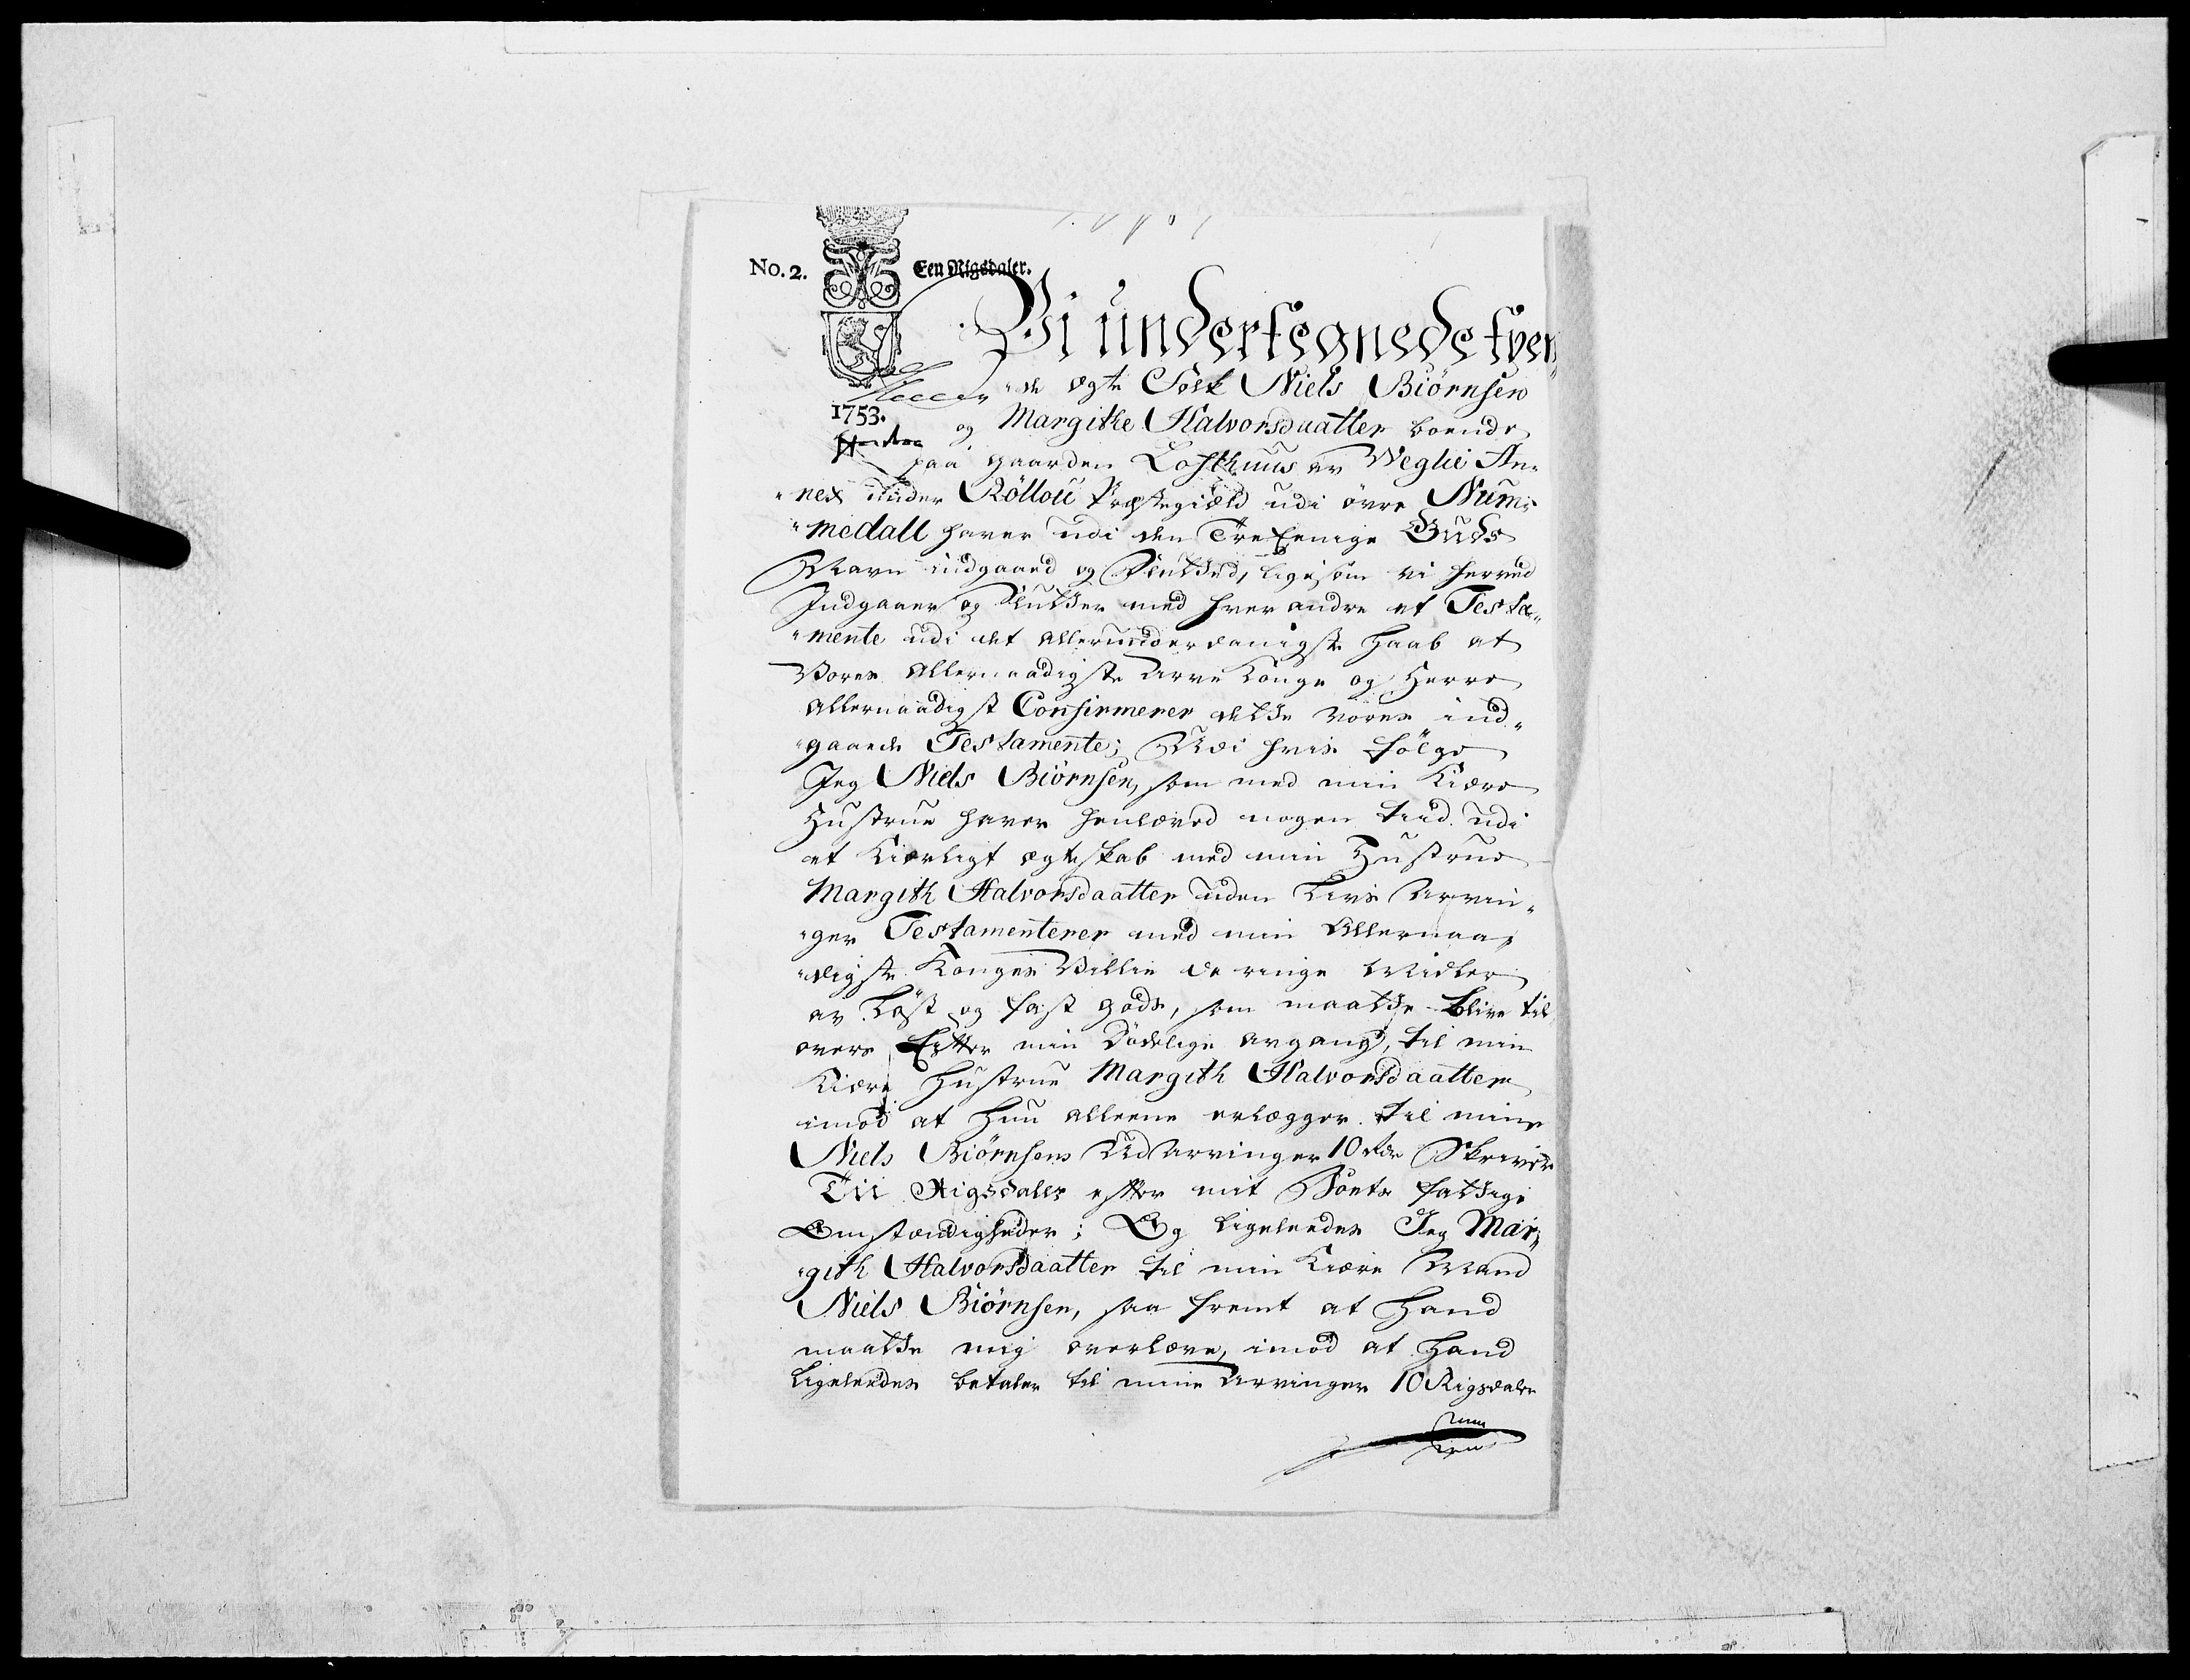 No. 2.
Een Rigsdaler.
Vi undertegnede tven„
„de ægte Folk Niels Biörnsen
1753.
og Margithe Halvorsdaatter boende
paa gaarden Lofthuus av Weglie An„
„nex under Röllou Præstegield udi øvre Num„
„medall haver udi den Tre Eenige Guds
Navn indgaaed og Slutted, ligesom vi herved
Indgaaer og Slutter med hver andre et Testa„
„mente udi det allerunderdanigste Haab at
Vores allernaadigste Arve Konge og Herre
allernaadigst Confirmerer dette vores ind„
„gaaede Testamente; Udi hvis følge
Jeg Niels Biörnsen, som med min Kiære
Hustrue haver henlæved nogen tiid udi
et kierligt ægteskab med min Hustrue
Margith Halvorsdaatter uden Livs Arvin„
„ger Testamenterer med min Allernaa„
„digste Konges Villie de ringe Midler
av Løst og fast gods, som maatte blive til
overs Efter min Dødelige avgang, til min
Kiære Hustrue Margith Halvorsdaatter
imod at Hun alleene erlægger til mine
Niels Biörnsens Ud Arvinger 10 rdr Skriver
Tii Rigsdaler efter mit Boets fattige
Omstændigheder; Og ligeleedes Jeg Mar„
„gith Halvorsdaatter til min Kiære Mand
Niels Biörnsen, saa fremt at Hand
maatte mig overlæve, imod at Hand
ligeleedes betaler til mine Arvinger 10 Rigsdaler